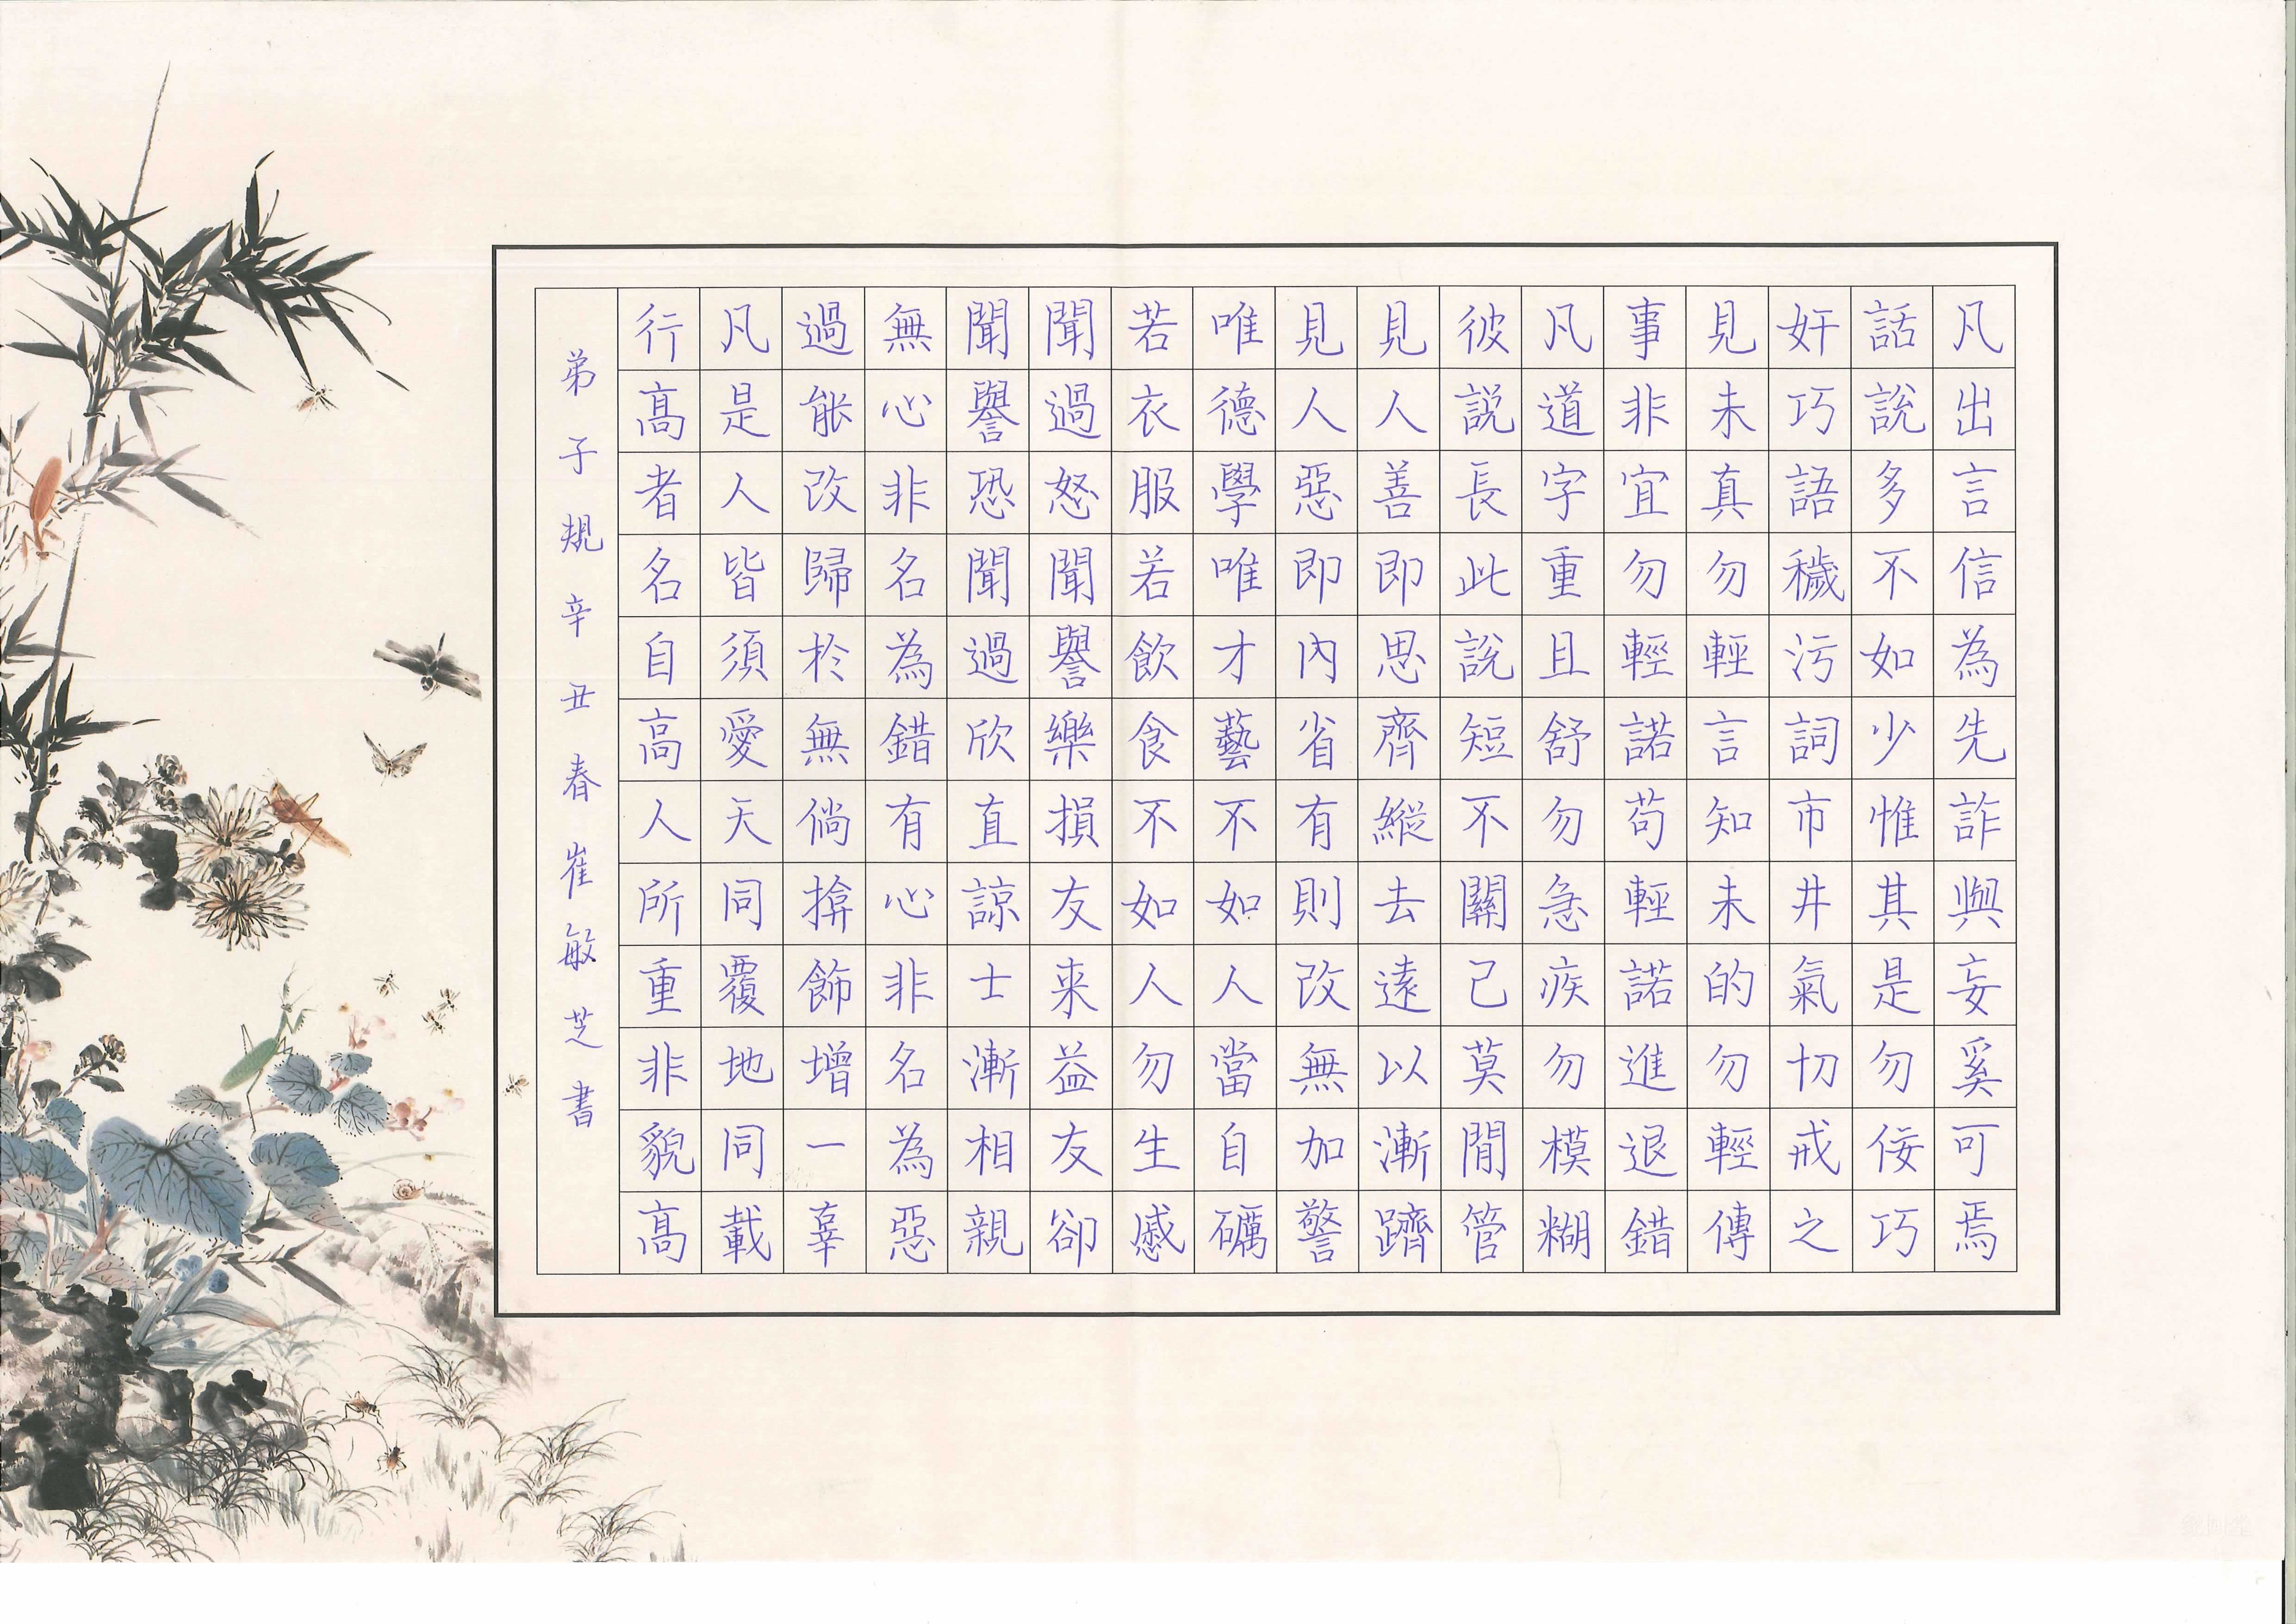 凡出言信為先詐與妄奚可焉
話說多不如少惟其是勿佞巧
奸巧語穢污詞市井氣切戒之
見未真勿輕言知未的勿輕傳
事非宜勿輕諾苟輕諾進退錯
凡道字重且舒勿急疾勿模糊
彼説長此說短不關己莫閒管
見人善即思齊縱去遠以漸躋
見人惡即內省有則改無加警
唯德學唯才藝不如人當自礪
若衣服若飲食不如人勿生慼
聞過怒聞譽樂損友来益友卻
聞譽恐聞過欣直諒士漸相親
無心非名為錯有心非名為惡
過能改歸於無倘揜飾增一辜
凡是人皆須愛天同覆地同載
行高者名自高人所重非貌高
弟子規辛丑春崔敏芝書